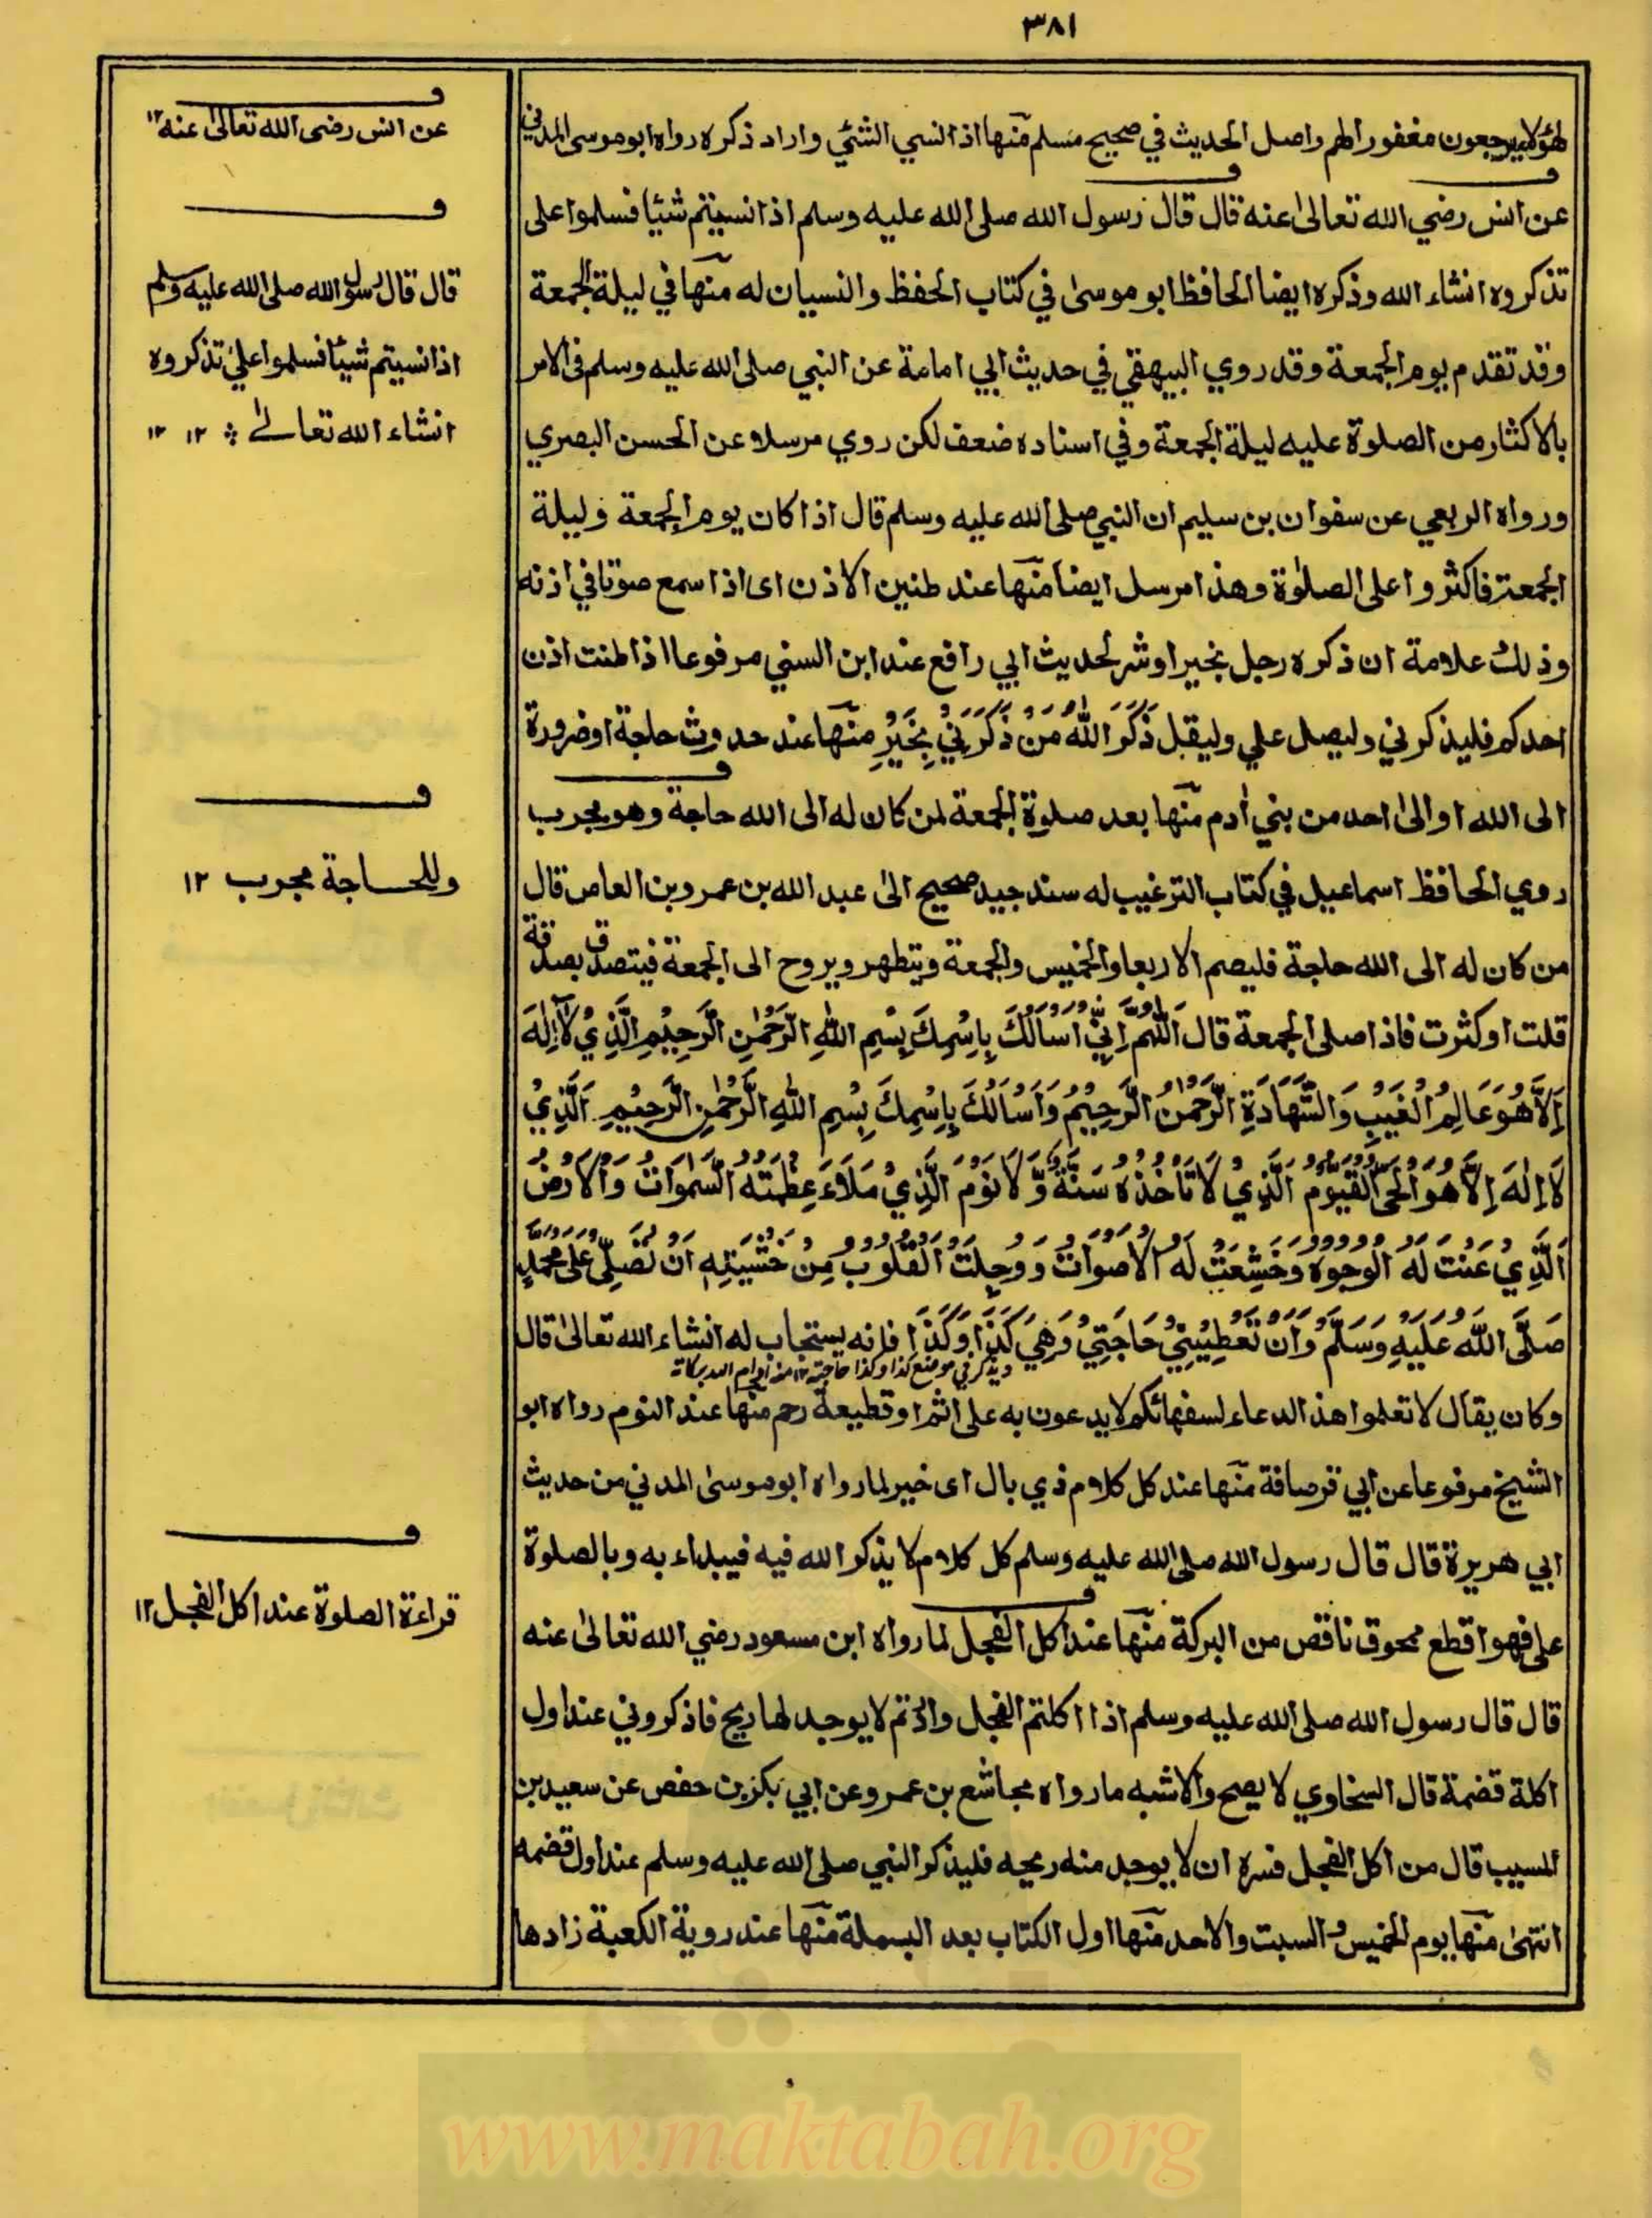 ٣٨١
لهؤلاء يرجعون مغفورا لهم واصل الحديث في صحيح مسلم منها اذا نسي الشئي واراد ذكره رواه ابو موسى المديني
عن انس رضي الله تعالىٰ عنه قال قال رسول الله صلى الله عليه وسلم اذا نسيتم شيئا فسلموا على
تذكروه انشاء الله وذكره ايضا الحافظ ابو موسىٰ في كتاب الحفظ والنسيان له منها في ليلة الجمعة
وقد تقدم يوم الجمعة وقد روي البيهقي في حديث ابي امامة عن النبي صلى الله عليه وسلم في الامر
بالاكثار من الصلوة عليه ليلة الجمعة وفي اسناده ضعف لكن روي مرسلا عن الحسن البصري
ورواه الربعي عن سفوان بن سليم ان النبي صلى الله عليه وسلم قال اذا كان يوم الجمعة وليلة
الجمعة فاكثروا على الصلوٰة وهذا مرسل ايضا منها عند طنين الاذن اى اذا سمع صوتا في اذنه
وذلك علامة ان ذكره رجل بخير او شر لحديث ابي رافع عند ابن السني مرفوعا اذا طنت اذن
احدكم فليذكرني وليصل علي وليقل ذَكَرَ اللهُ مَنْ ذَكَرَنِيْ بِخَيْرِ منها عند حدوث حاجة او ضرورة
الى الله او الىٰ احد من بني اٰدم منها بعد صلوة الجمعة لمن كان له الى الله حاجة وهو مجرب
روي الحافظ اسماعيل في كتاب الترغيب له سند جيد صحيح الىٰ عبد الله بن عمرو بن العاص قال
من كان له الى الله حاجة فليصم الاربعا والخميس والجمعة ويتطهر ويروح الى الجمعة فيتصدق بصدقة
قلت او كثرت فاذا صلى الجمعة قال اَللّٰهُمَّ اِنِّيْ اَسْاَلُكَ بِاِسْمِكَ بِسْمِ اللهِ الرَّحْمٰنِ الرَّحِيْمِ الَّذِيْ لَآ اِلٰهَ
اِلَّا هُوَ عَالِمُ الْغَيْبِ وَالشَّهَادَةِ الرَّحْمٰنُ الرَّحِيْمُ وَاَسْاَلُكَ بِاِسْمِكَ بِسْمِ اللهِ الرَّحْمٰنِ الرَّحِيْمِ الَّذِيْ
لَا اِلٰهَ اِلَّا هُوَ الْحَيُّ الْقَيُّوْمُ الَّذِيْ لَا تَاْخُذُهُ سَنَةٌ وَّلَا نَوْمَ الَّذِيْ مَلَاَءَ عِظْمَتُهُ السَّمٰوَاتُ وَالْاَرْضُ
اَلَّذِيْ عَنَتْ لَهُ الْوُجُوْهُ وَخَشِعَتْ لَهُ الْاَصْوَاتُ وَوَجِلَتْ الْقُلُوْبُ مِنْ خَشْيَتِهِ اَنْ تُصَلِّيَ عَلىٰ مُحَمَّدٍ
صَلَّى اللهُ عَلَيْهِ وَسَلَّمَ وَاَنْ تُعْطِيْنِيْ حَاجَتِيْ وَهِيَ كَذَا وَكَذَا فانه يستجاب له انشاء الله تعالىٰ قال
ويذكر في موضع كذا وكذا حاجته ١٢ منه
وكان يقال لا تعلموا هذا الدعاء لسفهائكم لا يدعون به على اثم او قطيعة رحم منها عند النوم رواه ابو
الشيخ مرفوعا عن ابي قرصافة منها عند كل كلام ذي بال اى خير لما رواه ابو موسىٰ المدني من حديث
ابي هريرة قال قال رسول الله صلى الله عليه وسلم كل كلام لا يذكر الله فيه فيبداء به وبالصلوة
على فهو اقطع ممحوق ناقص من البركة منها عند اكل الفجل لما رواه ابن مسعود رضي الله تعالىٰ عنه
قال قال رسول الله صلى الله عليه وسلم اذا اكلتم الفجل واردتم لا يوجد لها ريح فاذكروني عند اول
اكلة قضمة قال السخاوي لا يصح والاشبه ما رواه مجاشع بن عمرو عن ابي بكر بن حفص عن سعيد بن
المسيب قال من اكل الفجل فسره ان لا يوجد منه ريحه فليذكر النبي صلى الله عليه وسلم عند اول قضمه
انتهىٰ منها يوم الخميس والسبت والاحد منها اول الكتاب بعد البسملة منها عند روية الكعبة زادها
ف
عن انس رضى الله تعالىٰ عنه ١٢
ف
قال قال رسول الله صلى الله عليه وسلم
اذا نسيتم شيئا فسلموا علي تذكروه
انشاء الله تعالىٰ ١٢ ١٢
ف
وللحاجة مجرب ١٢
ف
قراءة الصلوة عند اكل الفجل ١٢
www.maktabah.org